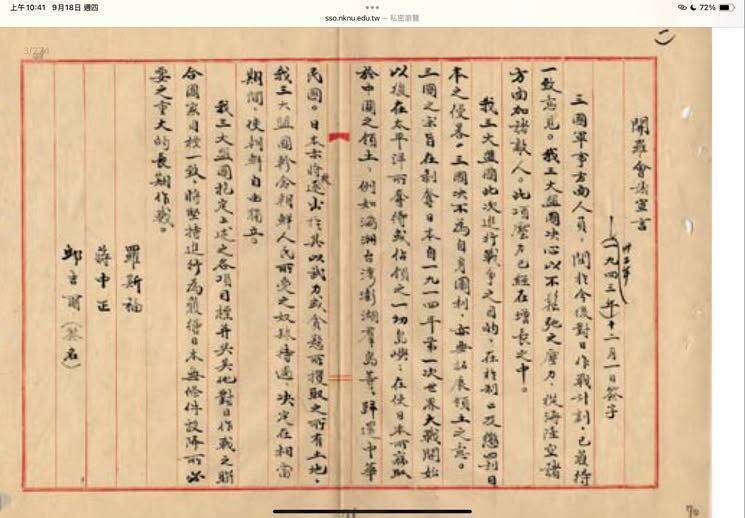 上午10:41 9月18日 週四
sso.nknu.edu.tw — 私密瀏覽
72%
3/274
開羅會議宣言
卅二年
(一九四三年)十二月一日簽字
三國軍事方面人員，關於今後對日作戰計劃，已獲得
一致意見。我三大盟國決心以不鬆弛之壓力，從海陸空諸
方面加諸敵人。此項壓力已經在增長之中。
我三大盟國此次進行戰爭之目的，在於制止及懲罰日
本之侵略。三國決不為自身圖利，亦無拓展領土之意。
三國之宗旨在剝奪日本自一九一四年第一次世界大戰開始
以後在太平洋所奪得或佔領之一切島嶼；在使日本所竊取
於中國之領土，例如滿洲台灣澎湖羣島等，歸還中華
民國。日本亦將被逐出於其以武力或貪慾所攫取之所有土地，
我三大盟國軫念朝鮮人民所受之奴隸待遇，決定在相當
期間，使朝鮮自由獨立。
我三大盟國抱定上述之各項目標並與其他對日作戰之聯
合國家目標一致，將堅持進行為獲得日本無條件投降所必
要之重大的長期作戰。
羅斯福
蔣中正
邱吉爾（簽名）
70